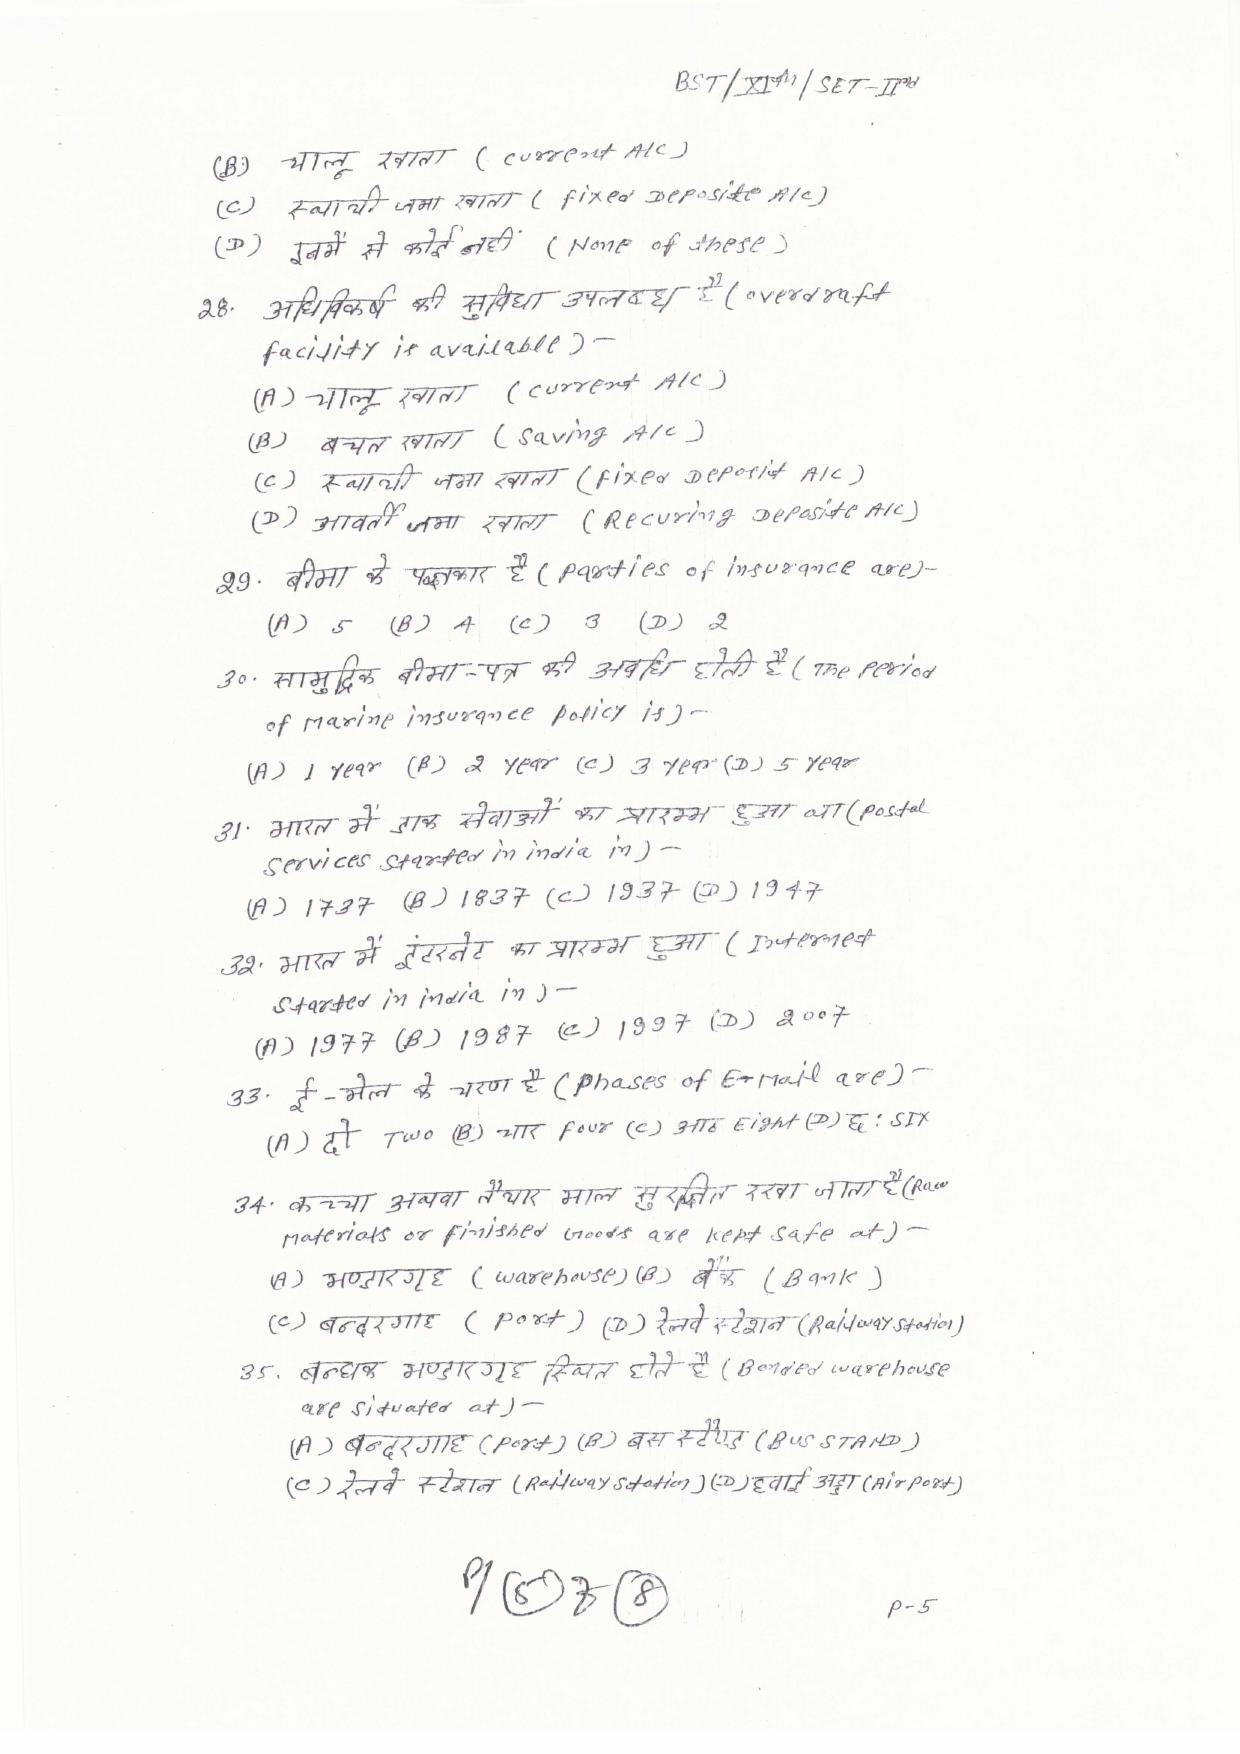 BST/XIth/SET-IInd
(B) चालू खाता ( current A/C )
(C) स्थायी जमा खाता ( fixed Deposite A/C)
(D) इनमें से कोई नहीं ( None of these )
28. अधिविकर्ष की सुविधा उपलब्ध है ( overdraft
facility is available ) -
(A) चालू खाता ( current A/C )
(B) बचत खाता ( saving A/C )
(C) स्थायी जमा खाता ( fixed Deposit A/C )
(D) आवर्ती जमा खाता ( Recuring Deposite A/C )
29. बीमा के पक्षकार है ( parties of insurance are )-
(A) 5 (B) 4 (C) 3 (D) 2
30. सामुद्रिक बीमा-पत्र की अवधि होती है ( The period
of Marine insurance policy is ) -
(A) 1 year (B) 2 year (C) 3 year (D) 5 year
31. भारत में डाक सेवाओं का प्रारम्भ हुआ था ( postal
services started in india in ) -
(A) 1737 (B) 1837 (C) 1937 (D) 1947
32. भारत में इंटरनेट का प्रारम्भ हुआ ( Internet
started in india in ) -
(A) 1977 (B) 1987 (C) 1997 (D) 2007
33. ई-मेल के चरण है ( phases of E-Mail are ) -
(A) दो Two (B) चार four (C) आठ Eight (D) छ: SIX
34. कच्चा अथवा तैयार माल सुरक्षित रखा जाता है ( Raw
Materials or finished Goods are kept safe at ) -
(A) भण्डारगृह ( warehouse ) (B) बैंक ( Bank )
(C) बन्दरगाह ( port ) (D) रेलवे स्टेशन ( Railway station )
35. बन्धक भण्डारगृह स्थित होते है ( Bonded warehouse
are situated at ) -
(A) बन्दरगाह ( port ) (B) बस स्टैण्ड ( BUS STAND )
(C) रेलवे स्टेशन ( Railway station ) (D) हवाई अड्डा ( Airport )
P-5